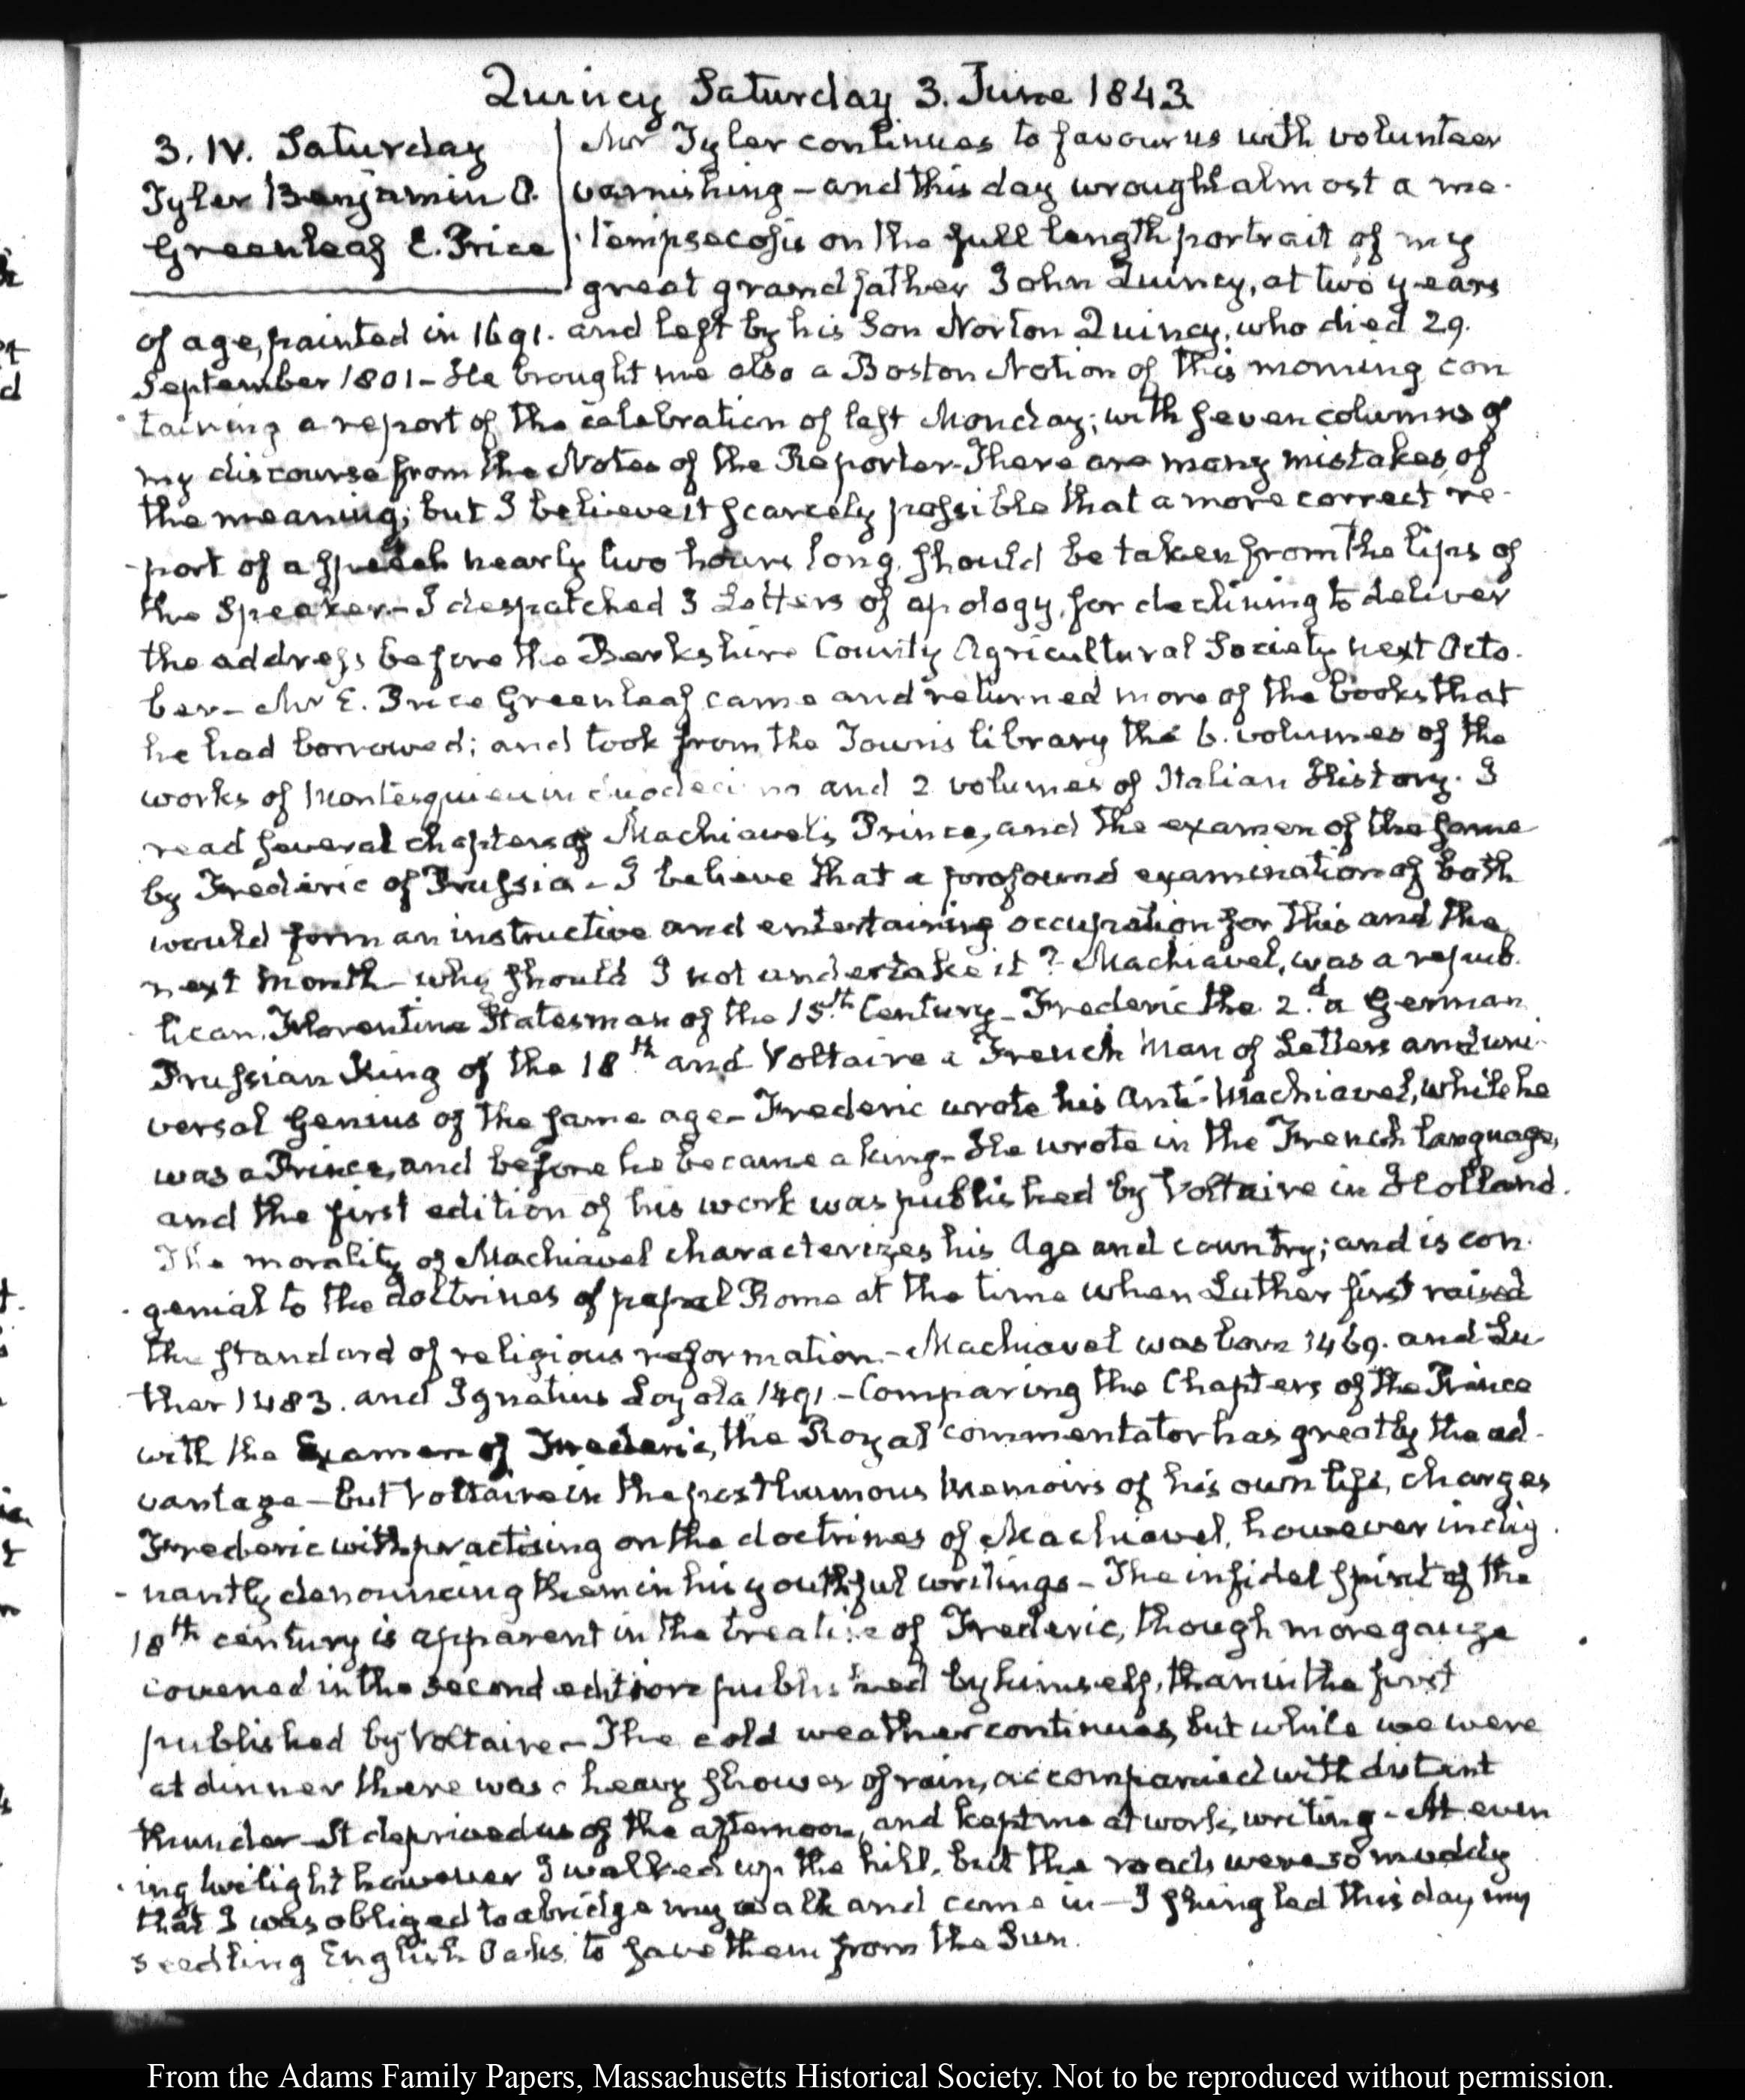 Quincy Saturday 3. June 1843.
3. IV. Saturday
Tyler Benjamin O.
Greenleaf E. Price
Mr Tyler continues to favour us with volunteer
varnishing – and this day wrought almost a me-
-tempsecosis on the full length portrait of my
great grandfather John Quincy, at two years
of age, painted in 1691. and left by his Son Norton Quincy, who died 29.
September 1801 – He brought me also a Boston Notion of this morning con
-taining a report of the celebration of last Monday; with seven columns of
my discourse from the Notes of the Reporter – There are many mistakes of
the meaning; but I believe it scarcely possible that a more correct re-
-port of a speech nearly two hours long, should be taken from the lips of
the Speaker – I despatched 3 Letters of apology, for declining to deliver
the address before the Berkshire County Agricultural Society next Octo-
ber – Mr E. Price Greenleaf came and returned more of the books that
he had borrowed; and took from the Towns library the 6. volumes of the
works of Montesquieu in duodecimo and 2 volumes of Italian History. I
read several chapters of Machiavel's Prince, and the examen of the same
by Frederic of Prussia – I believe that a profound examination of both
would form an instructive and entertaining occupation for this and the
next month – why should I not undertake it? Machiavel, was a repub-
-lican, Florentine Statesman of the 15.th Century – Frederic the 2.d a German
Prussian King of the 18th and Voltaire a French Man of Letters and uni-
versal Genius of the same age – Frederic wrote his Anti-Machiavel, while he
was a Prince, and before he became a king – He wrote in the French language,
and the first edition of his work was published by Voltaire in Holland.
The morality of Machiavel characterizes his Age and country; and is con-
-genial to the doctrines of papal Rome at the time when Luther first raised
the standard of religious reformation – Machiavel was born 1469. and Lu-
-ther 1483. and Ignatius Loyola 1491 – Comparing the Chapters of the Prince
with the Examen of Frederic, the Royal commentator has greatly the ad-
vantage – but Voltaire in the posthumous Memoirs of his own life, charges
Frederic with practising on the doctrines of Machiavel, however indig-
-nantly denouncing them in his youthful writings – The infidel spirit of the
18th century is apparent in the treatise of Frederic, though more gauze
covered in the second edition published by himself, than in the first
published by Voltaire – The cold weather continues, but while we were
at dinner there was a heavy shower of rain, accompanied with distant
thunder – It deprived us of the afternoon, and kept me at work, writing – At even
-ing twilight however I walked up the hill, but the roads were so muddy
that I was obliged to abridge my walk and come in – I shingled this day, my
seedling English Oaks, to save them from the Sun.
From the Adams Family Papers, Massachusetts Historical Society. Not to be reproduced without permission.